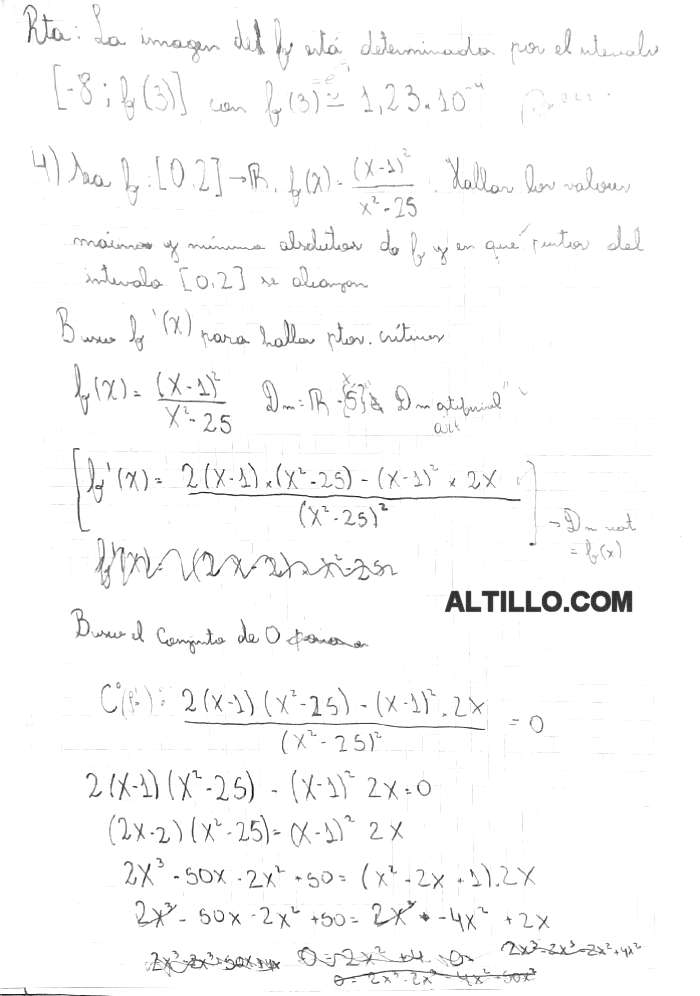 Rta: La imagen del f está determinada por el intervalo
[-8 ; f(3)] con f(3) ≃ 1,23.10⁻⁴
4) Sea f: [0,2] → ℝ. f(x) = (x-1)² / x²-25 . Hallar los valores
máximos y mínimo absolutos do f y en qué puntos del
intervalo [0,2] se alcanzan
Busco f'(x) para hallar ptos. críticos
f(x) = (x-1)² / x²-25 Dm = ℝ - {5} Dm
[f'(x) = 2(x-1).(x²-25) - (x-1)² x 2x / (x²-25)²] → Dm nat
= f(x)
ALTILLO.COM
Busco el conjunto de 0
C⁰(f'): 2(x-1)(x²-25) - (x-1)².2x / (x²-25)² = 0
2(x-1)(x²-25) - (x-1)² 2x = 0
(2x-2)(x²-25) = (x-1)² 2x
2x³ - 50x - 2x² + 50 = (x² - 2x + 1).2x
2x³ - 50x - 2x² + 50 = 2x³ - 4x² + 2x